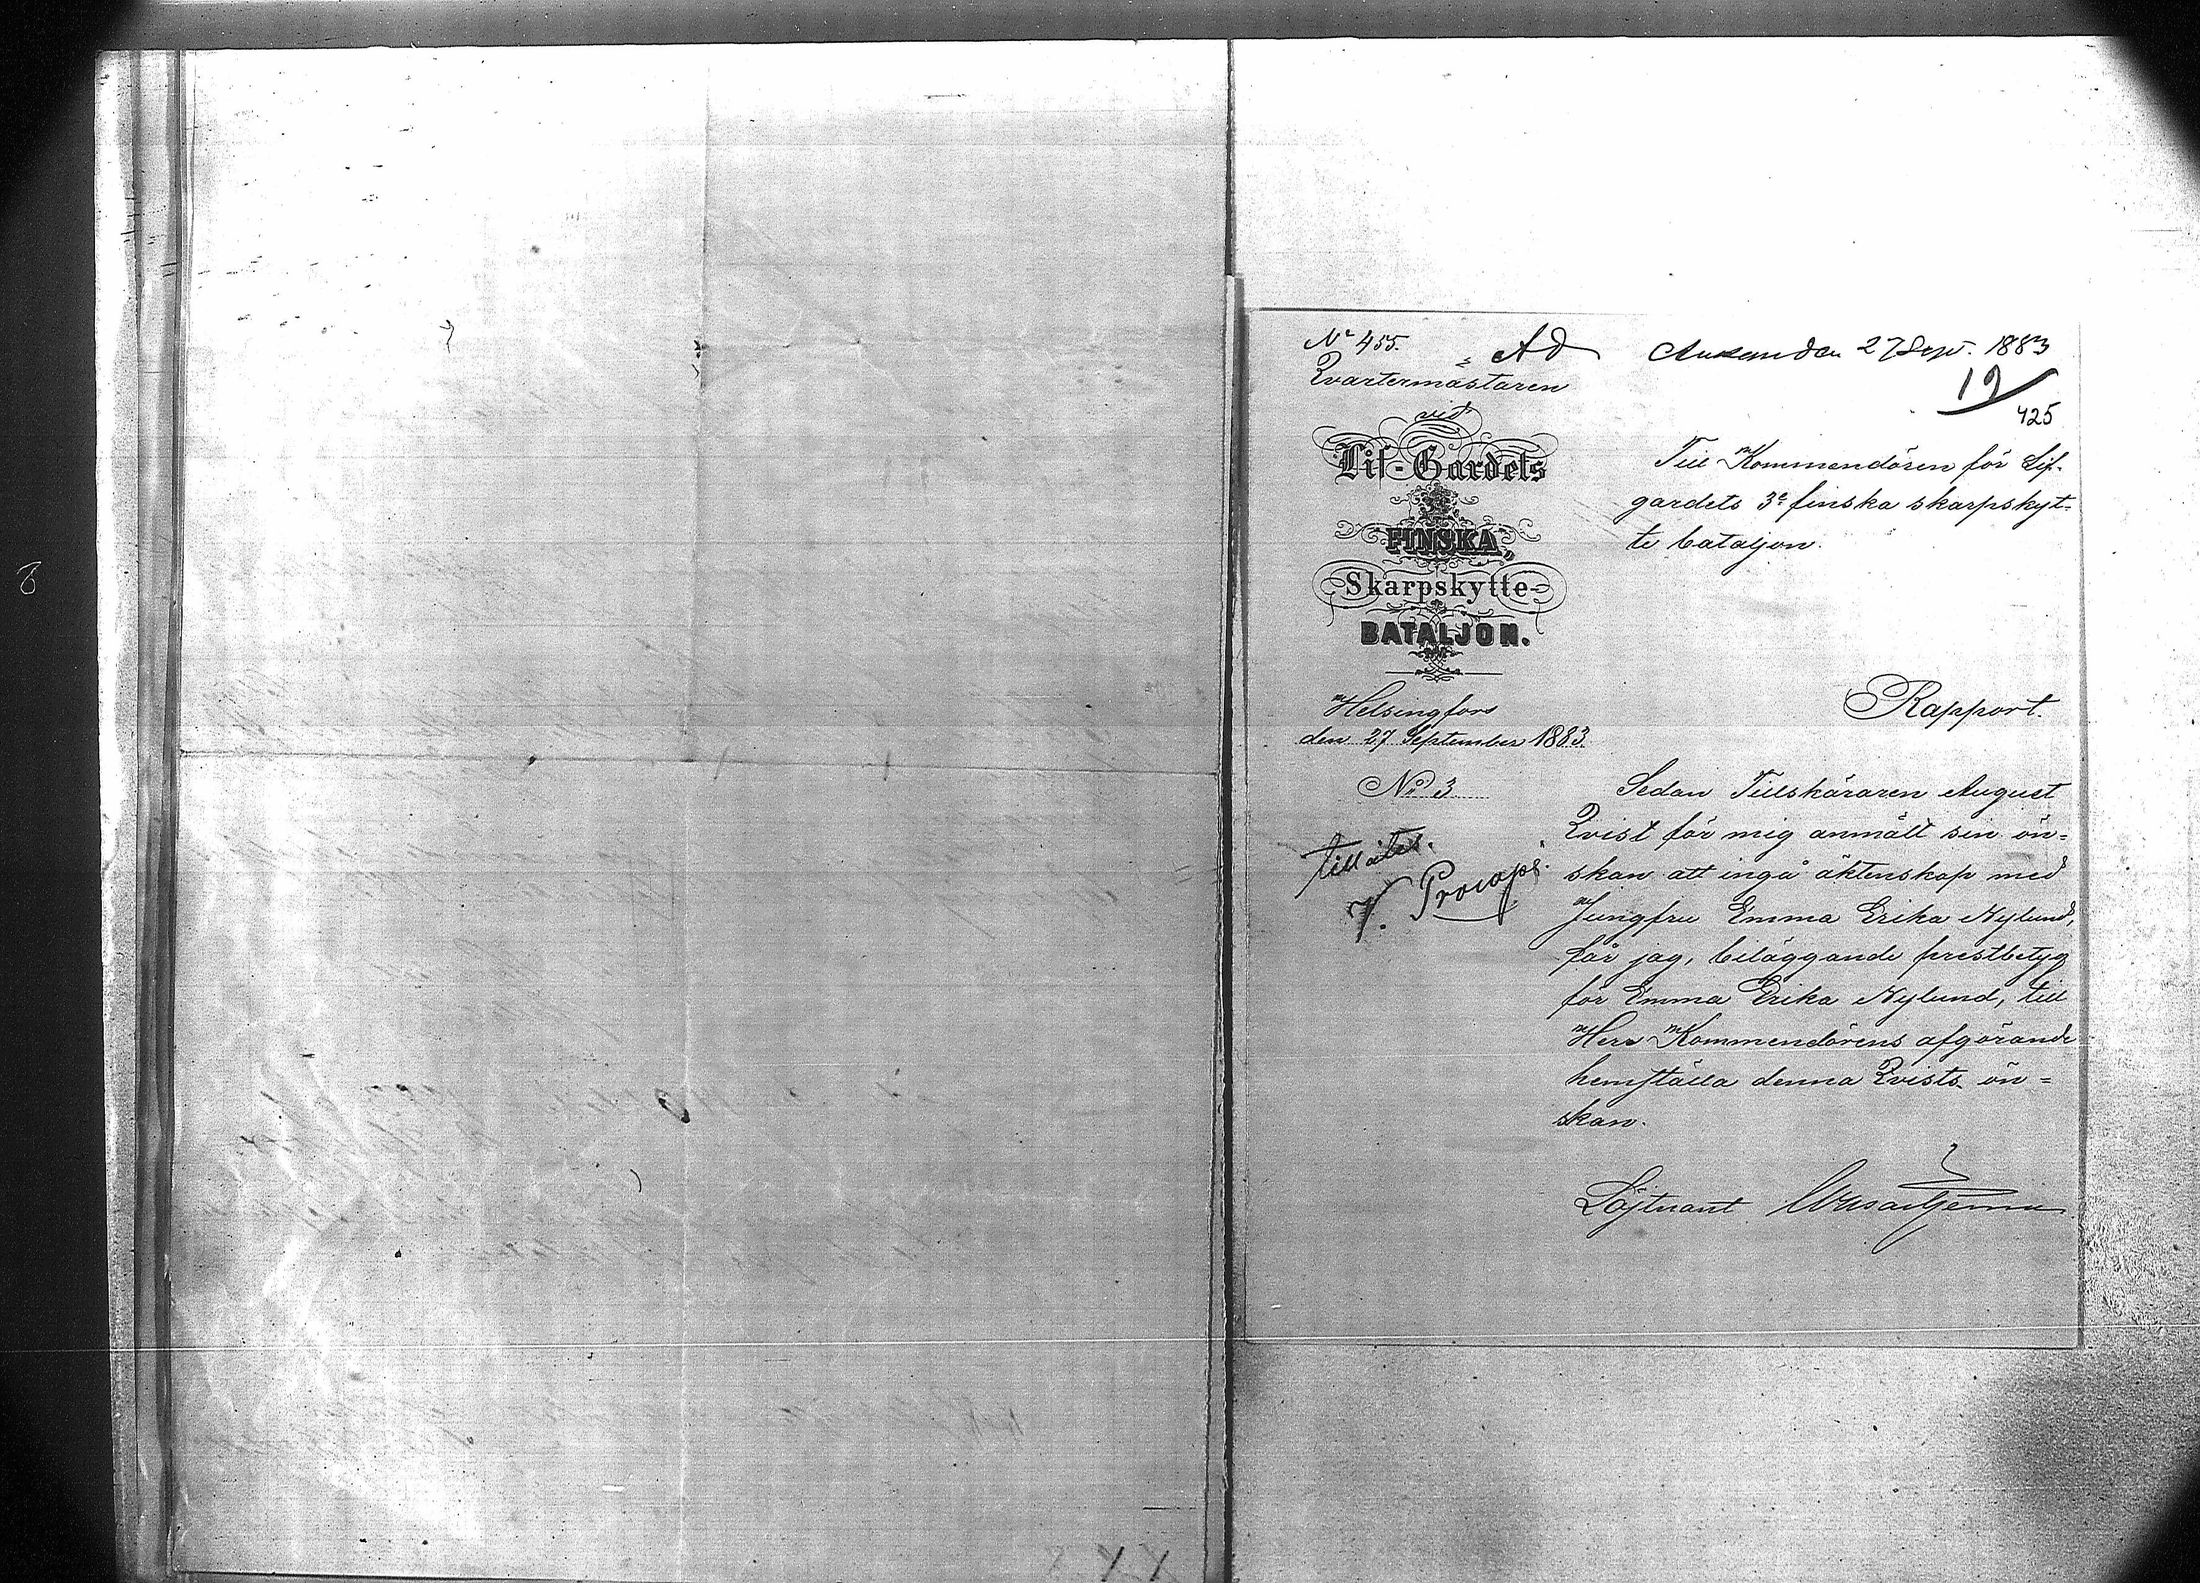 Nº 455.
Ad
Ank den 27 Sept. 1883
19
425
Qvartermästaren
vid
Lif-Gardets
3e
FINSKA
Skarpskytte-
BATALJON.
Helsingfors
den 27 September 1883.
Nº 3
tillåtes.
V. Procopé.
Till Kommendören för Lif-
gardets 3e finska skarpskyt-
te bataljon.
Rapport.
Sedan Tillskäraren August
Qvist för mig anmält sin ön-
skan att ingå äktenskap med
Jungfru Emma Erika Nylund,
får jag, biläggande prestbetyg
för Emma Erika Nylund, till
Herr Kommendörens afgörande
hemställa denna Qvists ön-
skan.
Löjtnant